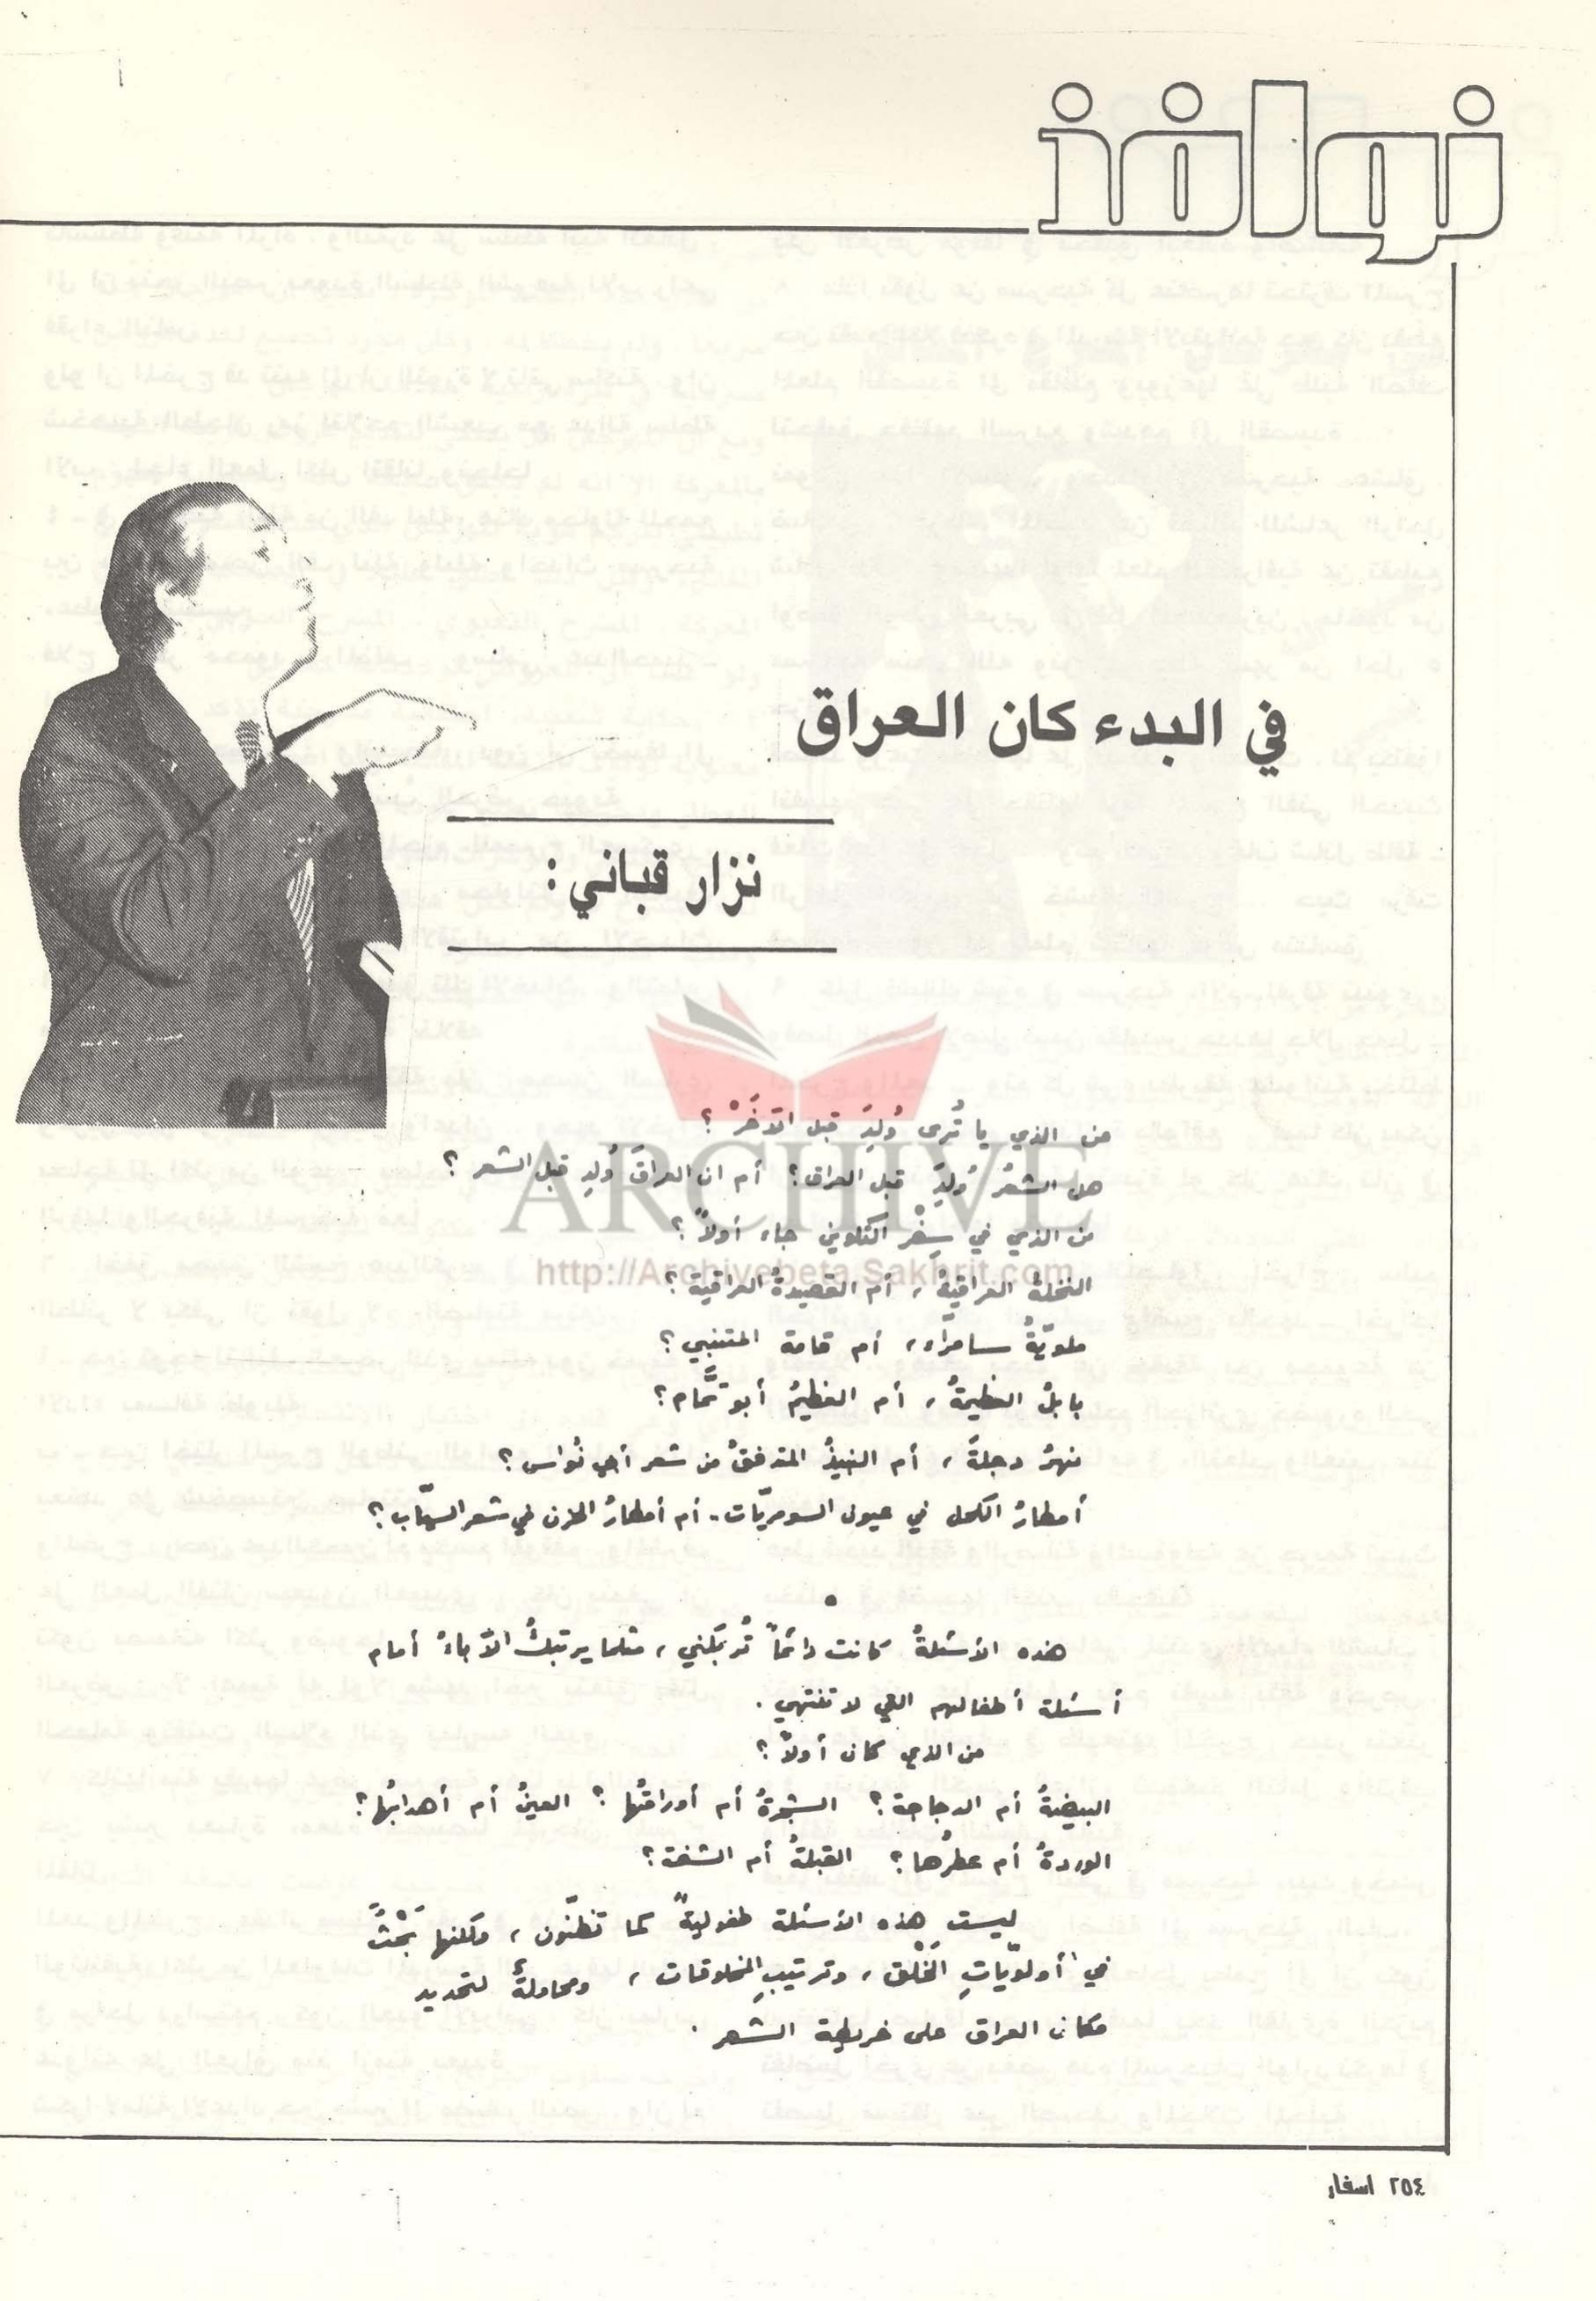 نوافذ
في البدء كان العراق
نزار قباني :
من الذي يا تُرى وُلِدَ قبل الآخَرْ ؟
هل الشعرُ وُلِدَ قبل العراق؟ أم ان العراقَ وُلِد قبل الشعر ؟
من الذي في سِفْرِ التكوين جاء أولاً ؟
النخلةُ العراقيةُ ، أم القصيدةُ العراقية ؟
ملويّةُ سامرّاء ، أم قامة المتنبي ؟
بابلُ العظيمةُ ، أم العظيمُ أبو تمَّام ؟
نهرُ دجلةَ ، أم النبيذُ المتدفقُ من شعر أبي نُواس ؟
أمطارُ الكحل في عيون السومريّات .. أم أمطارُ الحزن في شعر السيّاب ؟
•
هذه الأسئلةُ كانت دائماً تُربكني ، مثلما يرتبكُ الآباءُ أمام
أسئلة أطفالهم التي لا تنتهي .
من الذي كان أولاً ؟
البيضةُ أم الدجاجة ؟ الشجرةُ أم أوراقُها ؟ العينُ أم أهدابُها ؟
الوردةُ أم عطرُها ؟ القبلةُ أم الشفة ؟
ليست هذه الأسئلة طفوليةً كما تظنّون ، ولكنها بَحْثٌ
في أولويّاتِ الخَلْق ، وترتيبِ المخلوقات ، ومحاولةٌ لتحديد
مكان العراق على خريطة الشعر .
ARCHIVE
http://Archivebeta.Sakhrit.com
٢٥٤ اسفار